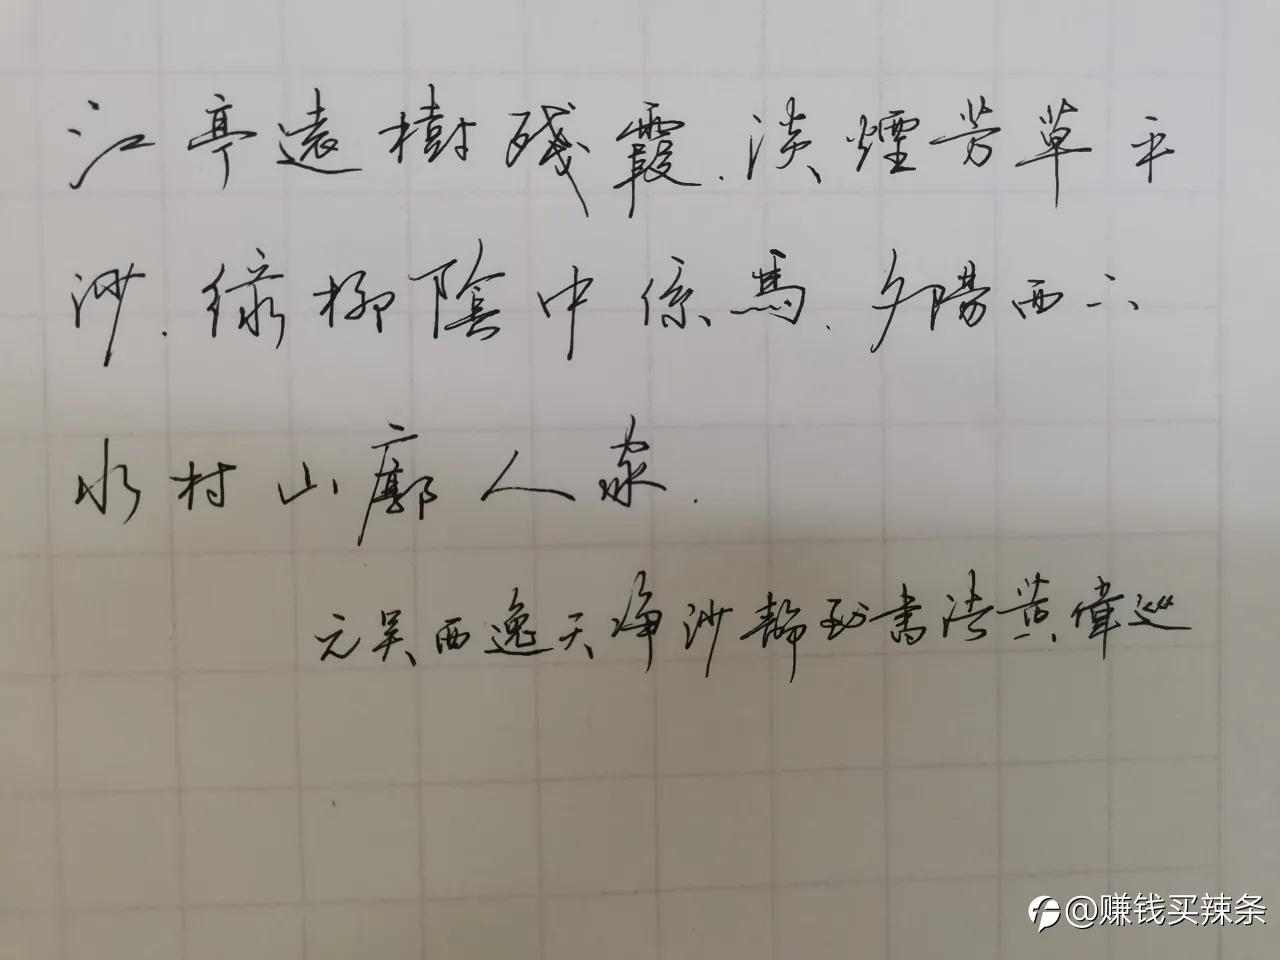 江亭遠樹残霞.淡煙芳草平
沙.緑柳陰中係馬.夕陽西下
水村山郭人家.
元吴西逸天净沙静致書法黄偉巡
@赚钱买辣条